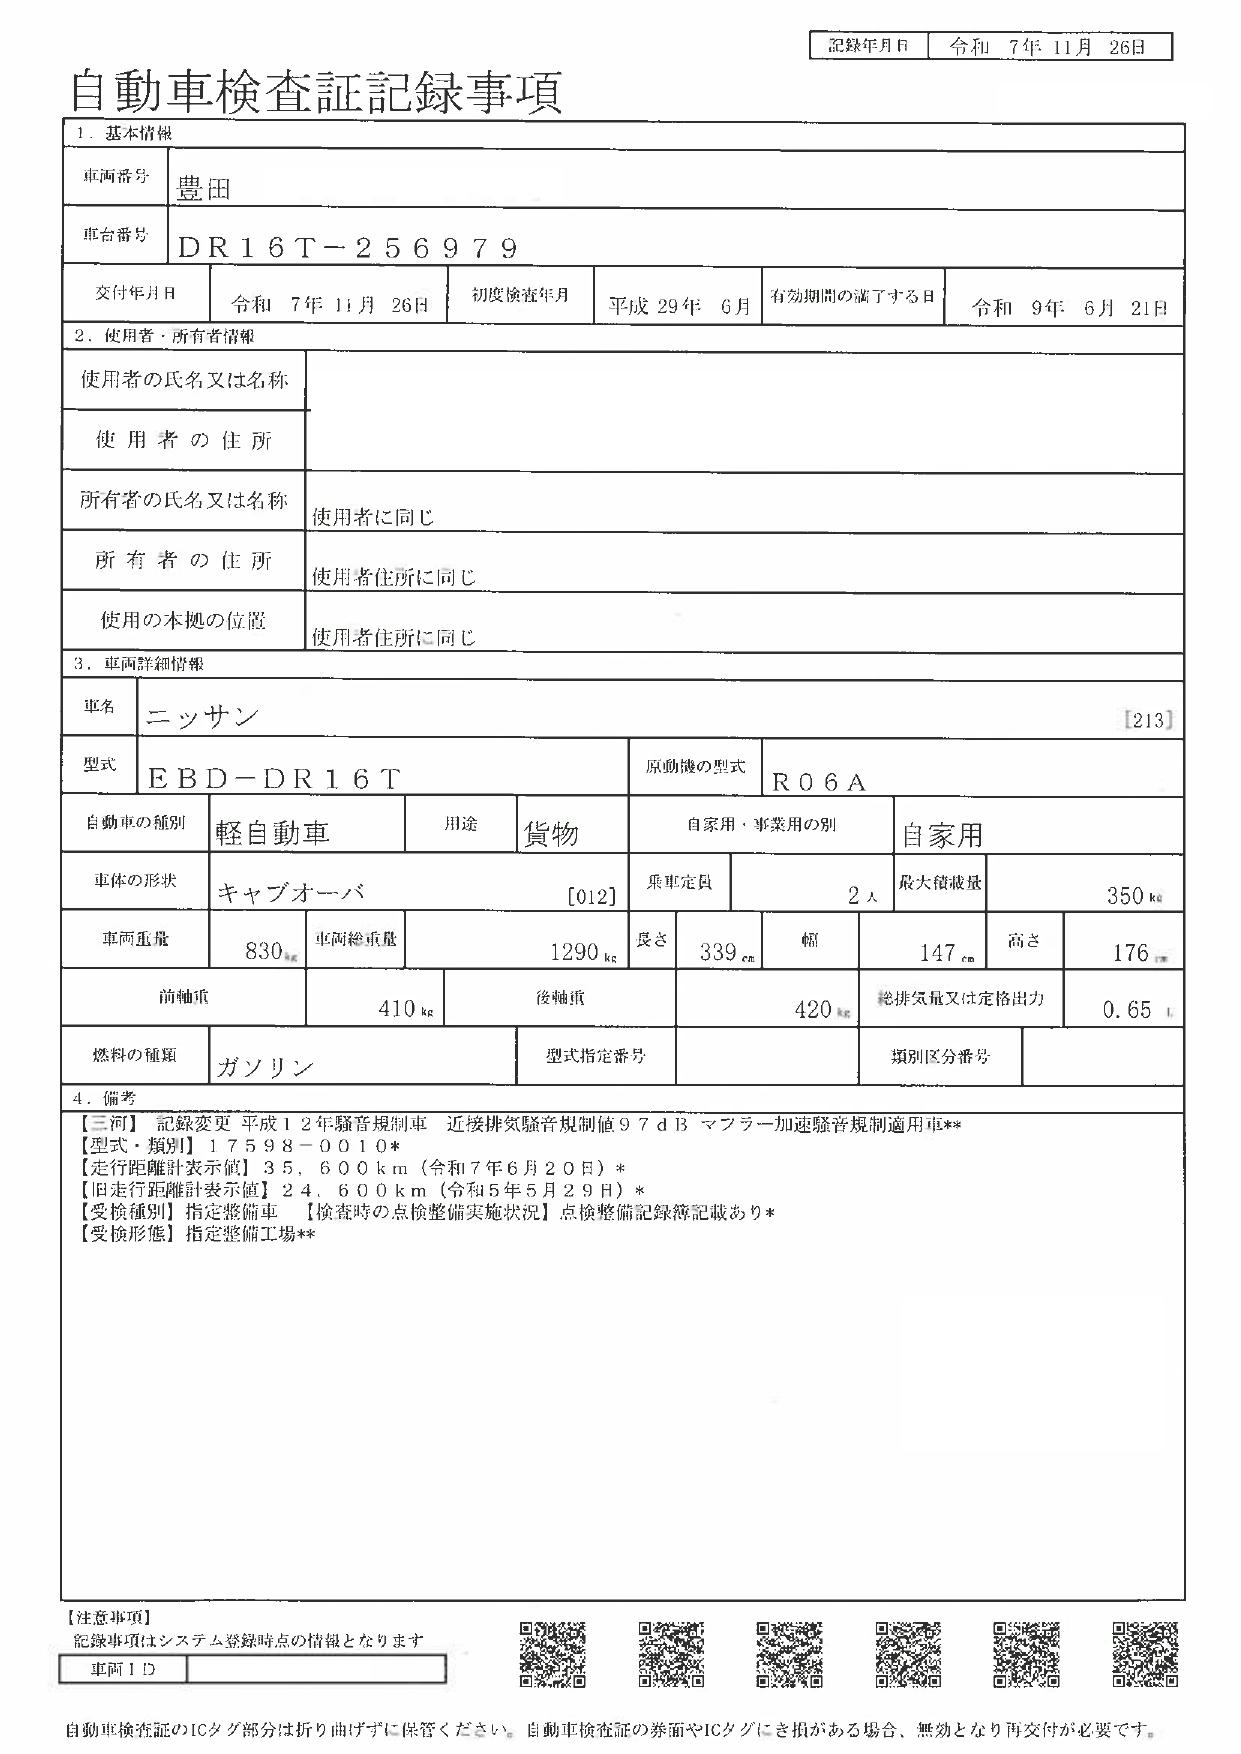 記録年月日 令和 7年 11月 26日
自動車検査証記録事項
1. 基本情報
車両番号 豊田
車台番号 DR16T-256979
交付年月日 令和 7年 11月 26日 初度検査年月 平成 29年 6月 有効期間の満了する日 令和 9年 6月 21日
2. 使用者・所有者情報
使用者の氏名又は名称
使用者の住所
所有者の氏名又は名称 使用者に同じ
所有者の住所 使用者住所に同じ
使用の本拠の位置 使用者住所に同じ
3. 車両詳細情報
車名 ニッサン [213]
型式 EBD-DR16T 原動機の型式 R06A
自動車の種別 軽自動車 用途 貨物 自家用・事業用の別 自家用
車体の形状 キャブオーバ [012] 乗車定員 2人 最大積載量 350kg
車両重量 830kg 車両総重量 1290kg 長さ 339cm 幅 147cm 高さ 176cm
前軸重 410kg 後軸重 420kg 総排気量又は定格出力 0.65 L
燃料の種類 ガソリン 型式指定番号 類別区分番号
4. 備考
【三河】 記録変更 平成12年騒音規制車 近接排気騒音規制値97dB マフラー加速騒音規制適用車**
【型式・類別】17598-0010*
【走行距離計表示値】35,600km(令和7年6月20日)*
【旧走行距離計表示値】24,600km(令和5年5月29日)*
【受検種別】指定整備車 【検査時の点検整備実施状況】点検整備記録簿記載あり*
【受検形態】指定整備工場**
【注意事項】
記録事項はシステム登録時点の情報となります
車両ID
自動車検査証のICタグ部分は折り曲げずに保管ください。自動車検査証の券面やICタグにき損がある場合、無効となり再交付が必要です。